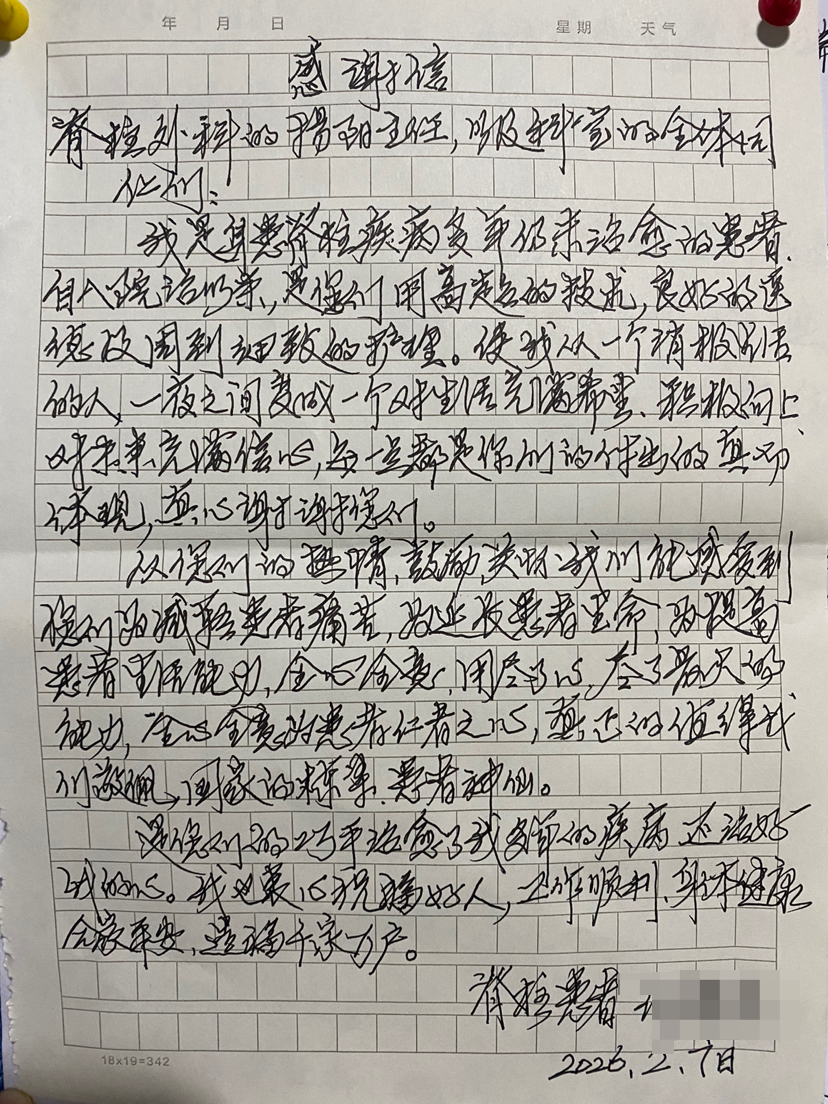 年 月 日 星期 天气
感谢信
脊柱外科的杨阳主任，以及科室的全体同
仁们：
我是身患脊柱疾病多年仍未治愈的患者，
自入院治疗来，是您们用高超的技术，良好的医
德及周到细致的护理。使我从一个消极生活
的人，一夜之间变成一个对生活充满希望、积极向上、
对未来充满信心，每一点都是你们的付出的真切
体现，真心谢谢您们。
从您们的热情，鼓励，关怀，我们能感受到
您们为减轻患者痛苦，为延长患者生命，为提高
患者生活能力，全心全意，用尽了心，尽了最大的
能力，全心全意的患者仁者之心，真正的值得我
们敬佩，国家的栋梁、患者神仙。
是您们的巧手治愈了我多年的疾病 还治好
我的心。我也衷心祝福好人，工作顺利，身体健康
合家平安，造福千家万户。
脊柱患者
2026.2.7日
18x19=342